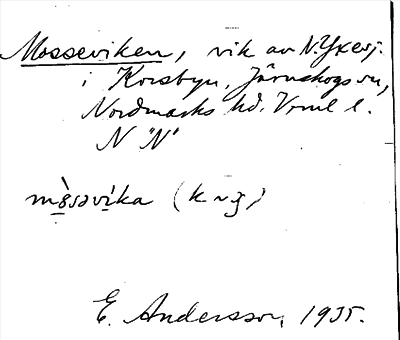 Mosseviken, vik av N. Ykesj.
i Korsbyn, Järnskogs sn,
Nordmarks hd. Vrml l.
N "N"
mòsəvíka (k ~ g)
E. Andersson, 1935.